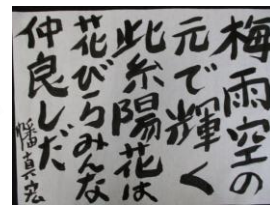 梅雨空の
元で輝く
此糸陽花は
花びらみんな
仲良しだ
幡真窓